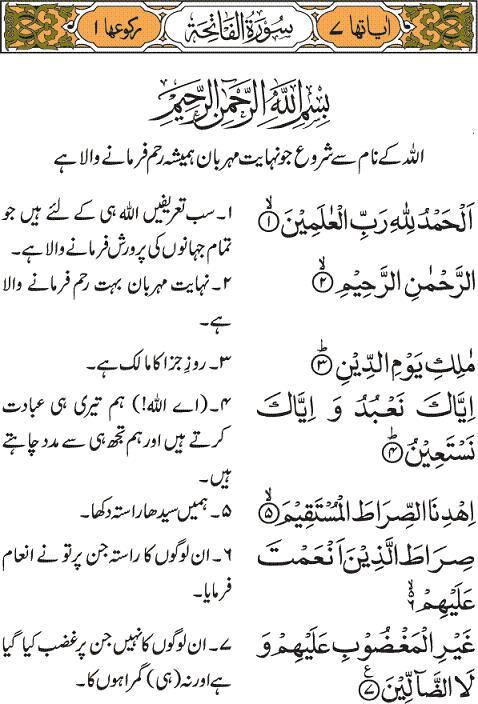 اٰیاتھا ۷ سُوْرَۃُ الْفَاتِحَۃِ رکوعھا ۱
بِسْمِ اللّٰہِ الرَّحْمٰنِ الرَّحِیْمِ
اللہ کے نام سے شروع جو نہایت مہربان ہمیشہ رحم فرمانے والا ہے
اَلْحَمْدُ لِلّٰہِ رَبِّ الْعٰلَمِیْنَۙ۝۱
۱۔ سب تعریفیں اللہ ہی کے لئے ہیں جو
تمام جہانوں کی پرورش فرمانے والا ہے۔
الرَّحْمٰنِ الرَّحِیْمِۙ۝۲
۲۔ نہایت مہربان بہت رحم فرمانے والا
ہے۔
مٰلِكِ یَوْمِ الدِّیْنِؕ۝۳
۳۔ روزِ جزا کا مالک ہے۔
اِیَّاكَ نَعْبُدُ وَ اِیَّاكَ
نَسْتَعِیْنُؕ۝۴
۴۔ (اے اللہ!) ہم تیری ہی عبادت
کرتے ہیں اور ہم تجھ ہی سے مدد چاہتے
ہیں۔
اِھْدِنَا الصِّرَاطَ الْمُسْتَقِیْمَۙ۝۵
۵۔ ہمیں سیدھا راستہ دکھا۔
صِرَاطَ الَّذِیْنَ اَنْعَمْتَ
عَلَیْھِمْۙ۝۶
۶۔ ان لوگوں کا راستہ جن پر تو نے انعام
فرمایا۔
غَیْرِ الْمَغْضُوْبِ عَلَیْھِمْ وَ
لَا الضَّآلِّیْنَ۠۝۷
۷۔ ان لوگوں کا نہیں جن پر غضب کیا گیا
ہے اور نہ (ہی) گمراہوں کا۔